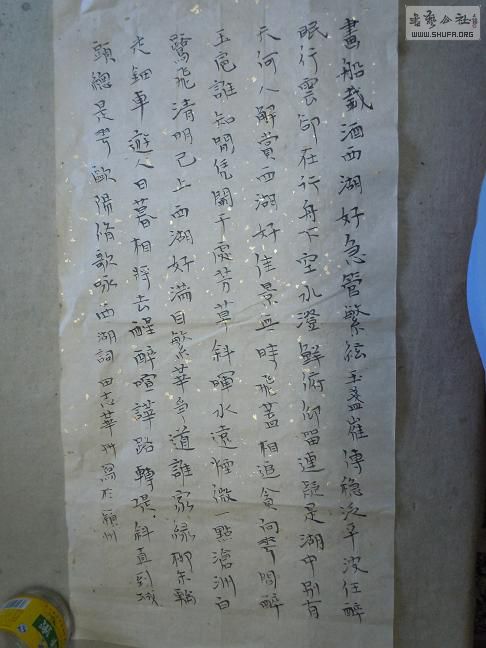 畫船載酒西湖好急管繁絃玉盞崔傳稳泛平波任醉
眠行雲卻在行舟下空水澄鮮俯仰留連疑是湖中別有
天何人解賞西湖好佳景無時飛蓋相追貪向花間醉
玉卮誰知閒凭闌干處芳草斜暉水遠煙微一點滄洲白
鷺飛清明已上西湖好滿目繁華爭道誰家綠柳朱輪
走鈿車遊人日暮相將去醒醉喧譁路轉堤斜直到城
頭總是花歐陽脩歌咏西湖詞 田志華 寫於潁州
書藝公社
WWW.SHUFA.ORG